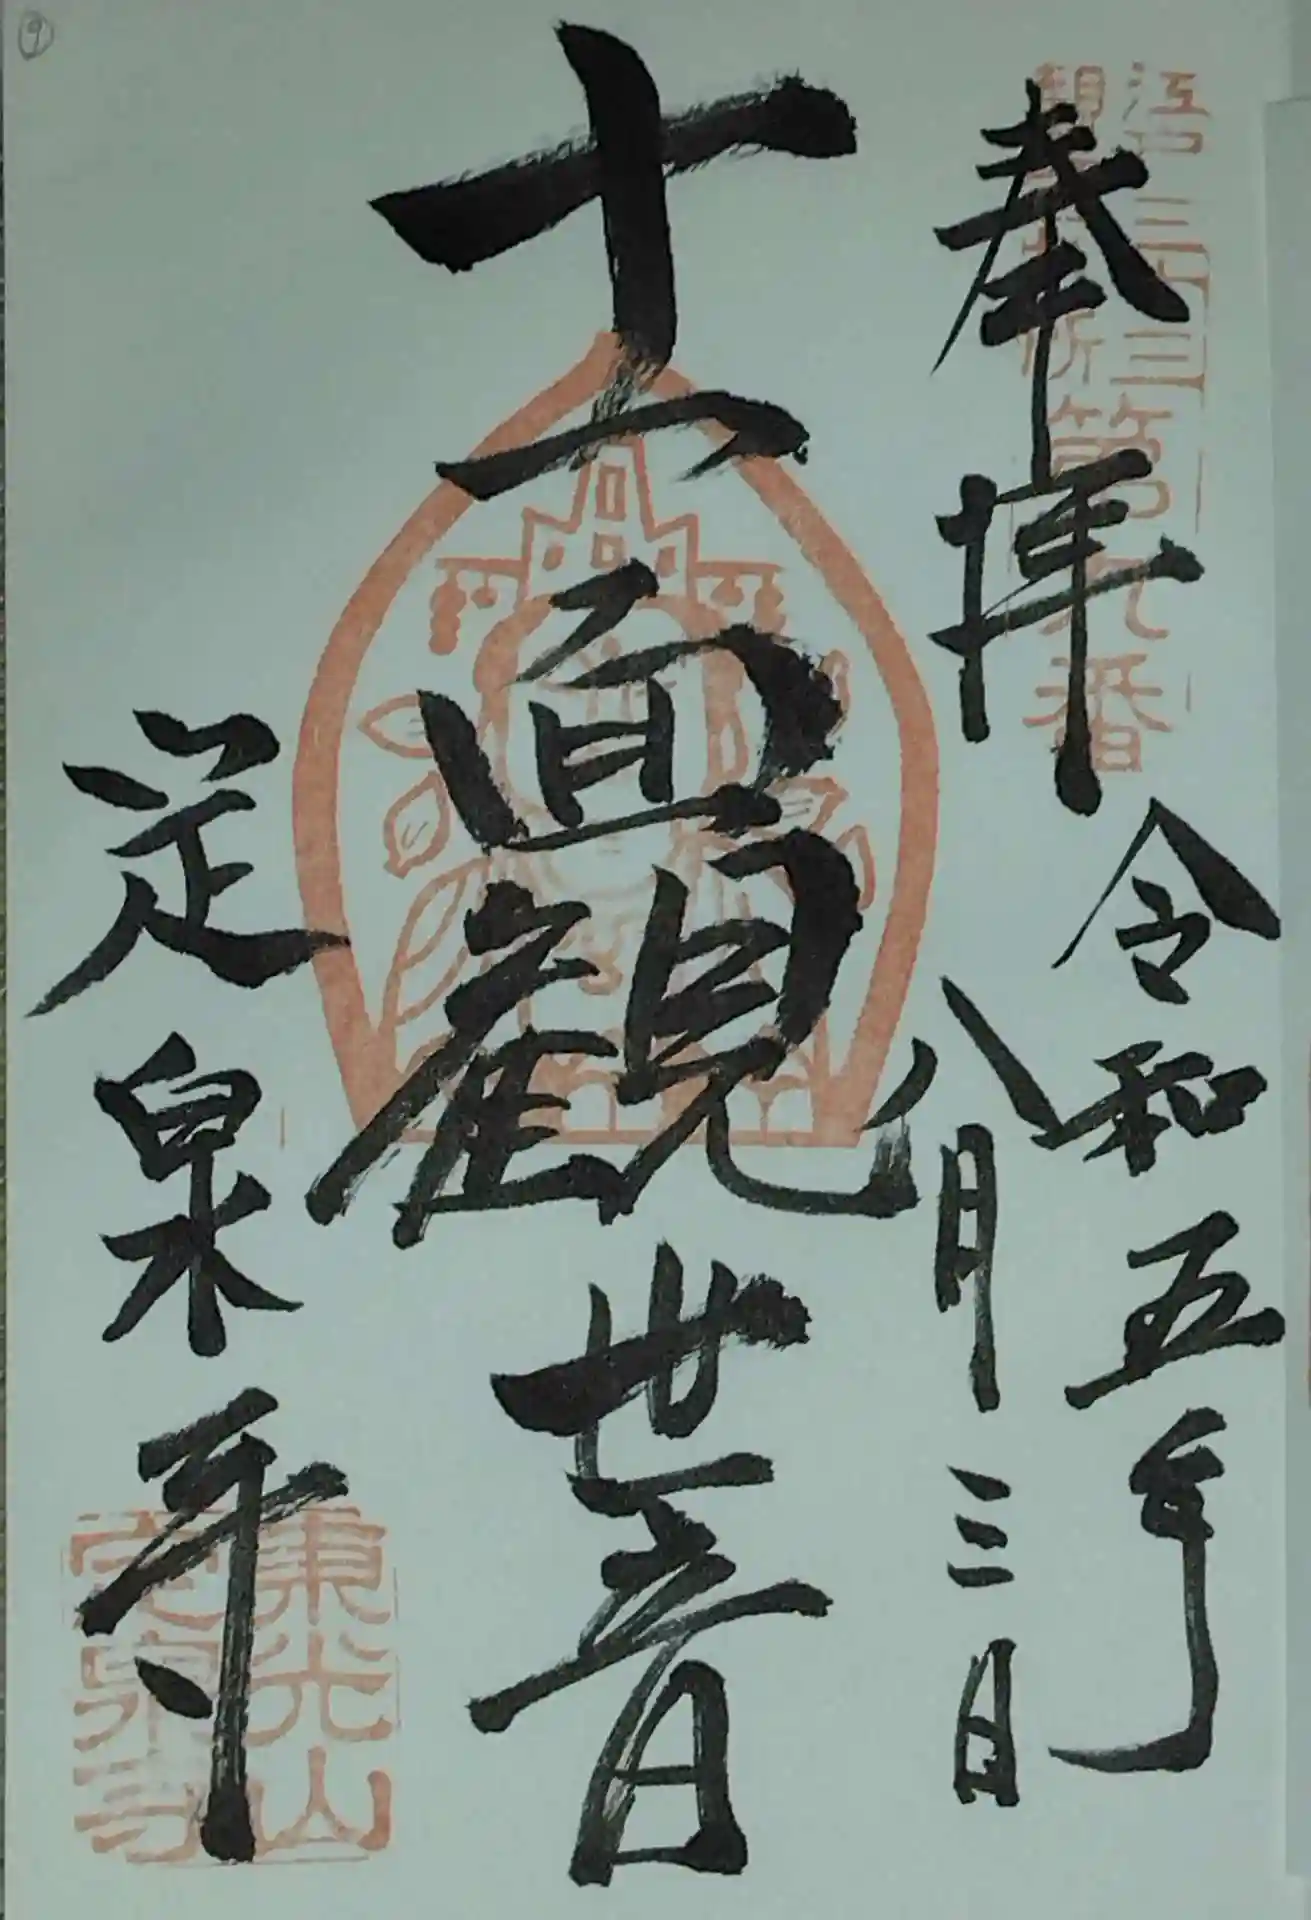 ⑨
江戸三十三
観音札所
第九番
奉拝
令和五年
八月三日
十一面観世音
定泉寺
東光山
定泉寺